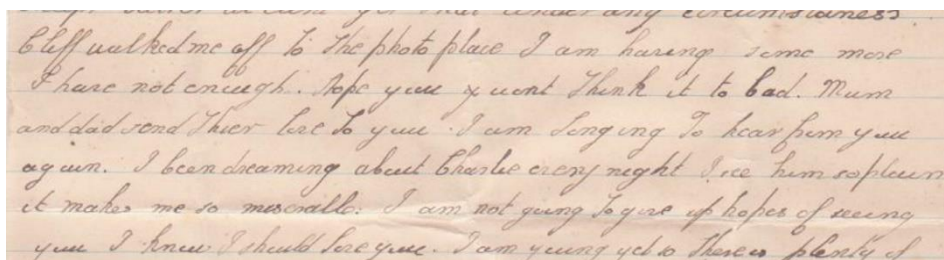 under any circumstances.
Cliff walked me off to the photo place I am having some more
I have not enough. Hope you y wont think it to bad. Mum
and dad send thier love to you. I am longing to hear from you
again. I been dreaming about Charlie every night I see him so plain
it makes me so miserable. I am not going to give up hopes of seeing
you I knew I should love you. I am young yet so there is plenty of